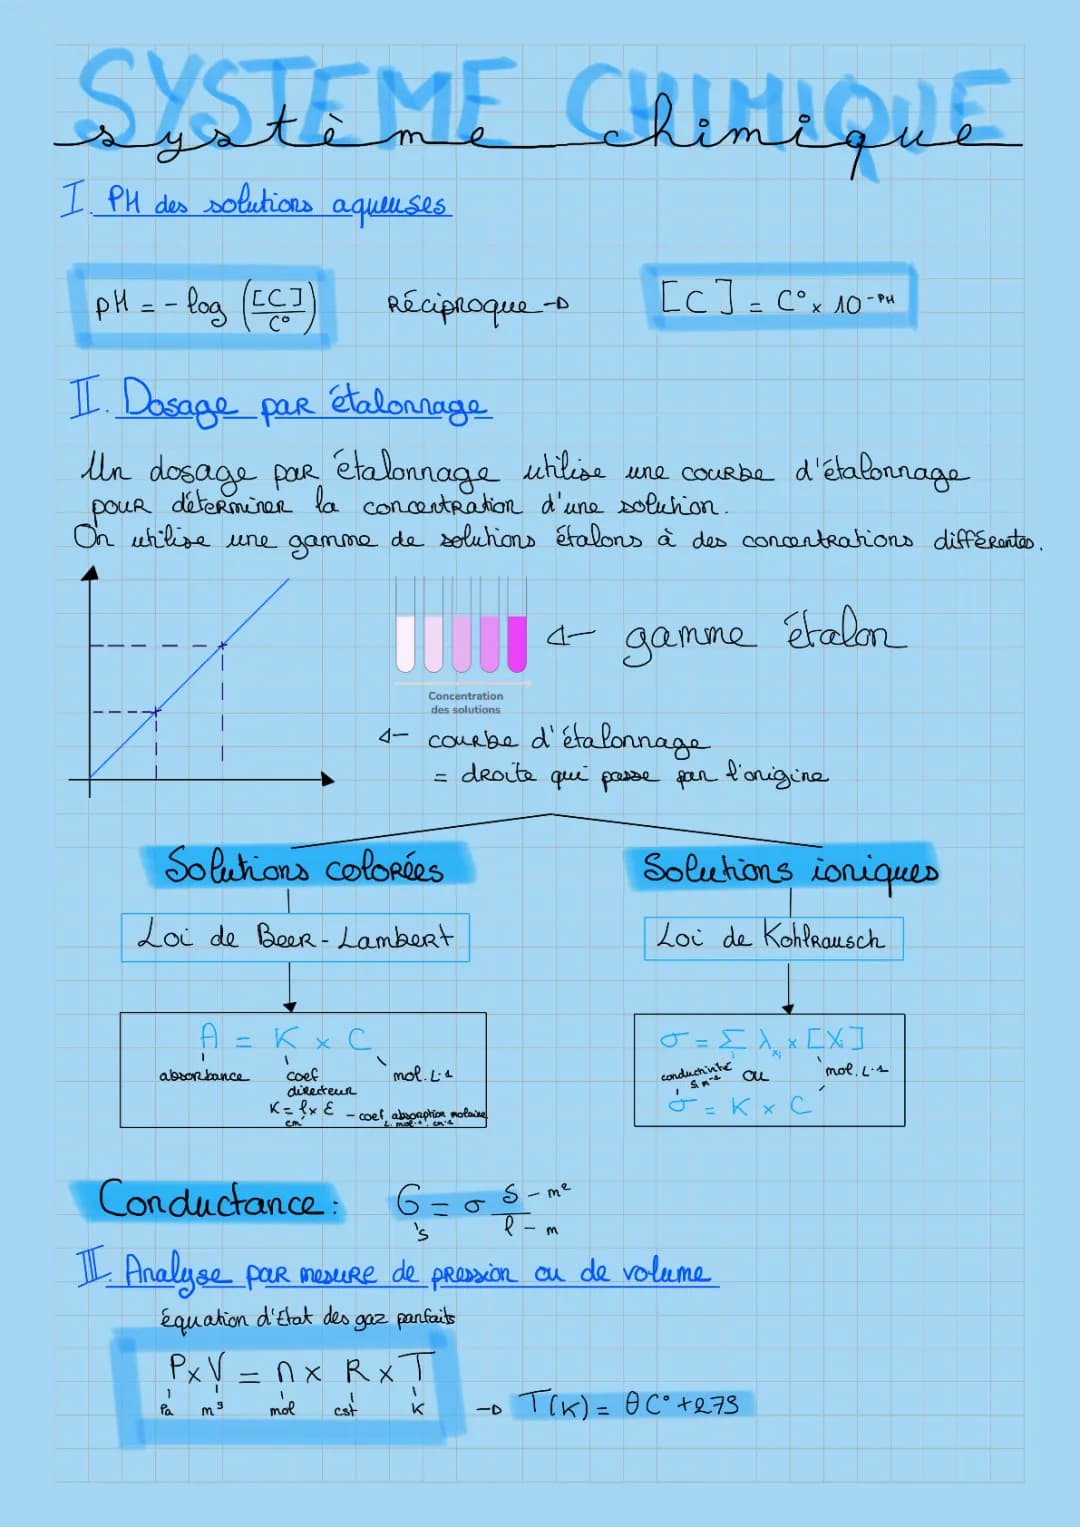 SYSTEME CHIMIQUE
système chimique
I. PH des solutions aqueuses
pH = - log ([C]/C°)
Réciproque →
[C] = C° × 10⁻ᴾᴴ
II. Dosage par étalonnage
Un dosage par étalonnage utilise une courbe d'étalonnage
pour déterminer la concentration d'une solution.
On utilise une gamme de solutions étalons à des concentrations différentes.
← gamme étalon
Concentration
des solutions
← courbe d'étalonnage
= droite qui passe par l'origine
Solutions colorées
Solutions ioniques
Loi de Beer-Lambert
Loi de Kohlrausch
A = K × C
absorbance
coef
directeur
mol.L-1
K = l × ε - coef absorption molaire
cm
L.mol-1.cm-1
σ = Σ λxi × [Xi]
i
conductivité
S m-1
ou
mol.L-1
σ = K × C
Conductance : G = σ S/l
S
- m²
- m
III. Analyse par mesure de pression ou de volume
équation d'Etat des gaz parfaits
P × V = n × R × T
Pa m³ mol cst K
→ T(K) = θ C° + 273